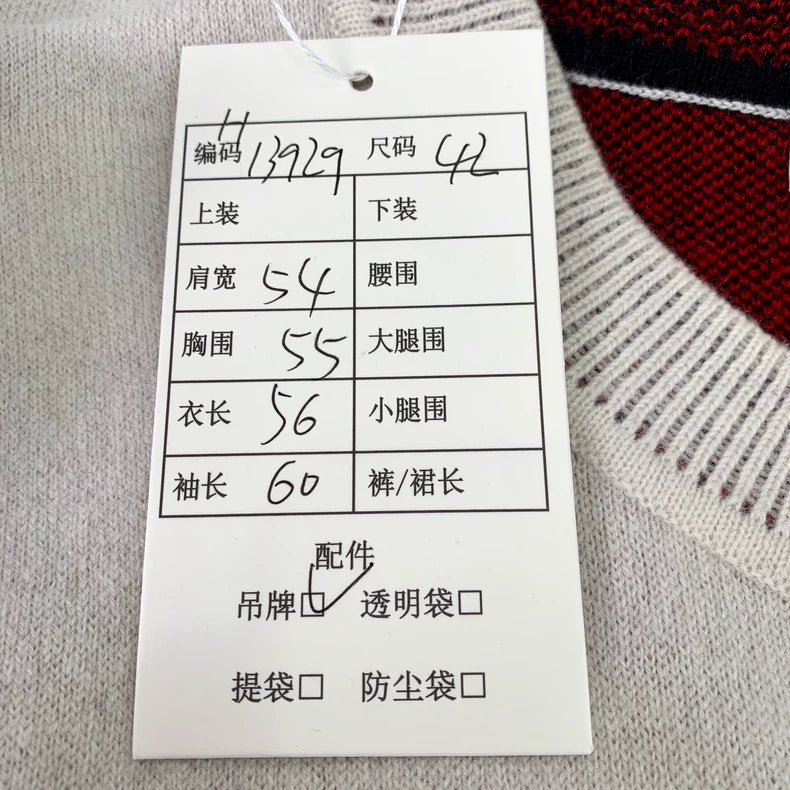 编码 H13929 尺码 42
上装 下装
肩宽 54 腰围
胸围 55 大腿围
衣长 56 小腿围
袖长 60 裤/裙长
配件
吊牌☑ 透明袋□
提袋□ 防尘袋□